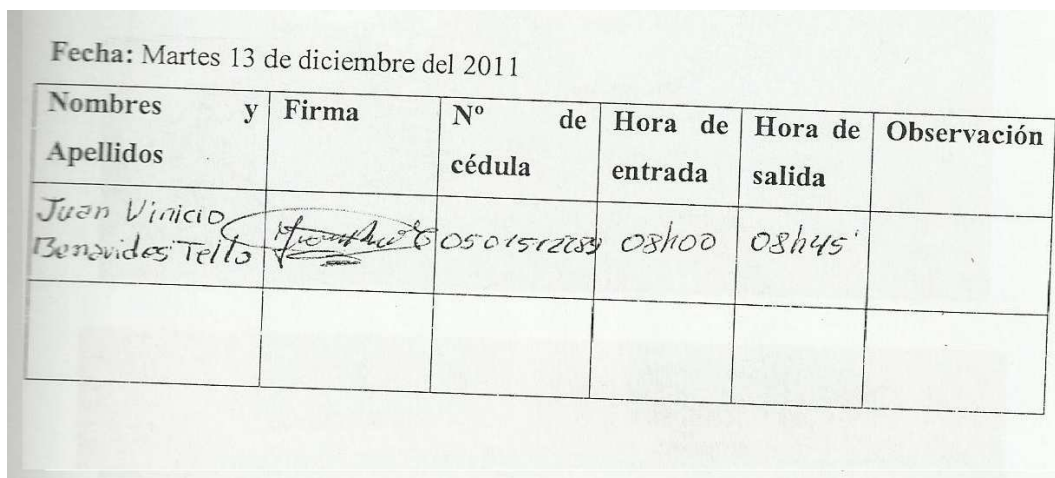 Fecha: Martes 13 de diciembre del 2011
Nombres y Apellidos Firma Nº de cédula Hora de entrada Hora de salida Observación
Juan Vinicio
Benavides Tello 08h00 08h45'